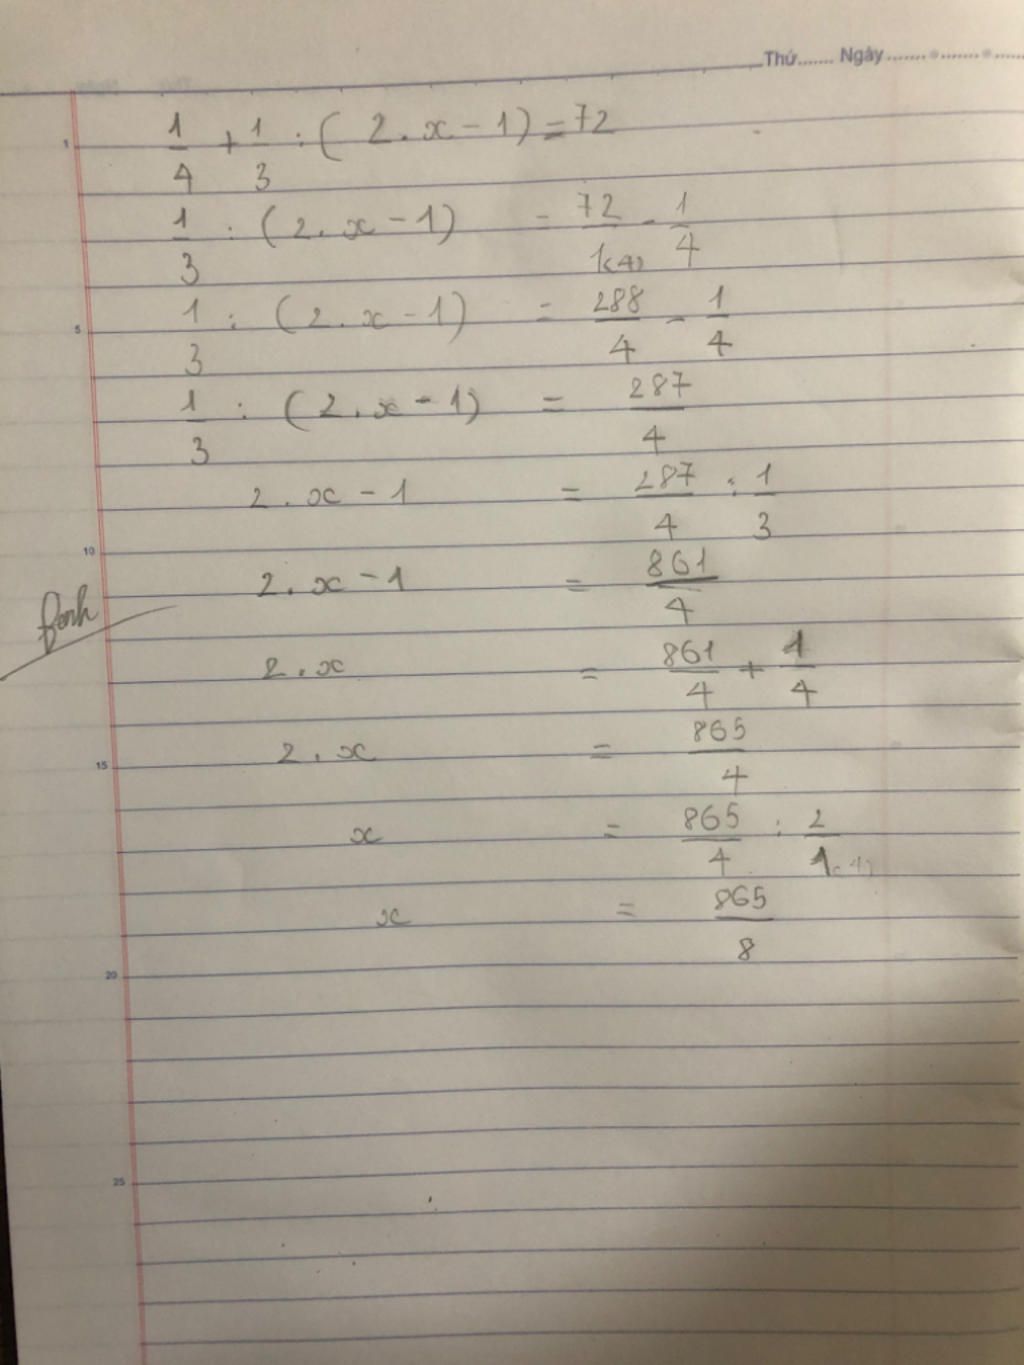 Thứ....... Ngày.......
1/4 + 1/3 : ( 2 . x - 1 ) = 72
1/3 : ( 2 . x - 1 ) = 72/1(4) - 1/4
5
1/3 : ( 2 . x - 1 ) = 288/4 - 1/4
1/3 : ( 2 . x - 1 ) = 287/4
2 . x - 1 = 287/4 : 1/3
10
2 . x - 1 = 861/4
2 . x = 861/4 + 1/4
15
2 . x = 865/4
x = 865/4 : 2/1
x = 865/8
20
25